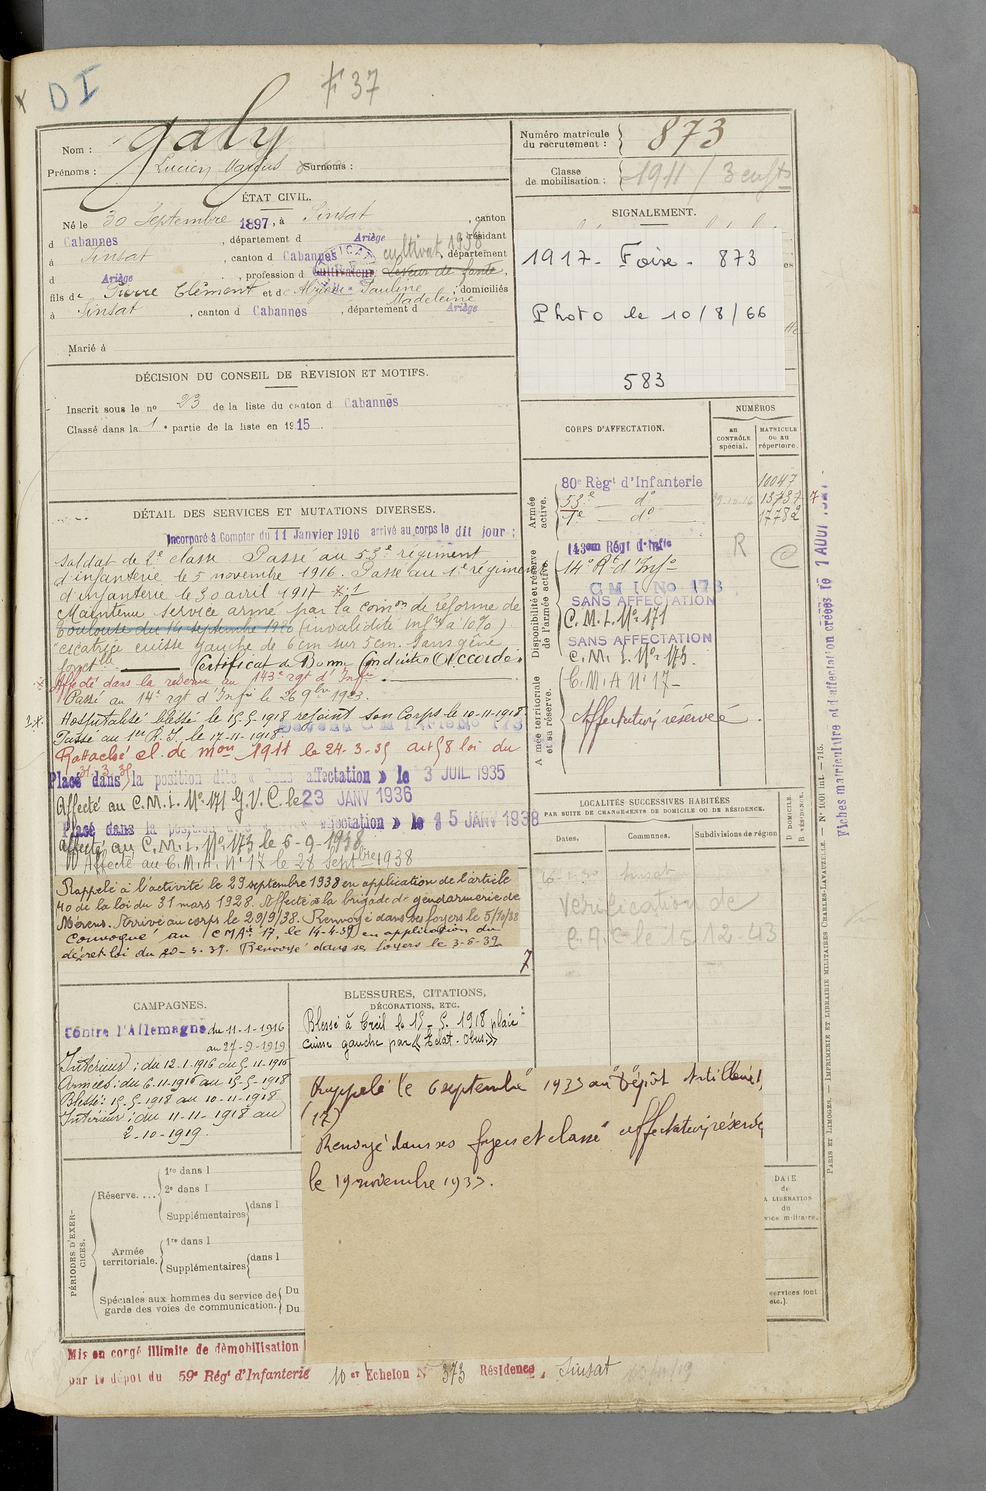 DI
F 37
Nom : Galy
Prénoms : Lucien Surnoms :
Numéro matricule du recrutement : 873
Classe de mobilisation : 1911 / 3 enfts
ÉTAT CIVIL.
Né le 30 Septembre 1897, à Sinsat, canton
d Cabannes, département d Ariège, résidant
à Sinsat, canton d Cabannes, département
d Ariège, profession d Cultivateur cultivat. 1938
fils de Pierre Clément et d Pauline Madeleine, domiciliés
à Sinsat, canton d Cabannes, département d Ariège
Marié à
SIGNALEMENT.
1917 - Foix - 873
Photo le 10/8/66
583
DÉCISION DU CONSEIL DE REVISION ET MOTIFS.
Inscrit sous le no 23 de la liste du canton d Cabannes
Classé dans la 1e partie de la liste en 1915.
CORPS D'AFFECTATION.
NUMÉROS
au CONTRÔLE spécial.
MATRICULE ou au répertoire.
Armée active.
80e Régt d'Infanterie 10047
53e do 13737
1e do 17782
Disponibilité et réserve de l'armée active.
143em Régt d'Infie R
14e Rt d'Infie
C M I No 173
SANS AFFECTATION
C. M. I. No 171
SANS AFFECTATION
C. M. I. No 173.
Armée territoriale et sa réserve.
C. M. A No 17 -
Affectation réservée.
DÉTAIL DES SERVICES ET MUTATIONS DIVERSES.
Incorporé à Compter du 11 Janvier 1916 arrivé au corps le dit jour :
Soldat de 2e classe Passé au 53e régiment
d'infanterie le 5 novembre 1916. Passé au 1e régiment
d'infanterie le 30 avril 1917 *1
Maintenu service armé par la comon de réforme de
Toulouse du 14 septembre 1920 (invalidité infre à 10%)
cicatrice cuisse gauche de 6cm sur 5cm sans gêne
fonctlle Certificat de Bonne Conduite Accordé.
Affecté dans la réserve au 143e rgt d'Infie
Passé au 14e rgt d'Infie le 26 9bre 1923.
Hospitalisé blessé le 15-5-1918 rejoint son Corps le 10-11-1918
Passé au 1er R.I. le 17-11-1918.
Rattaché cl. de mon 1911 le 24-3-35 art 58 loi du
31-3-
Placé dans la position dite « Sans affectation » le 3 JUIL 1935
Affecté au C.M.I. No 171 G.V.C. le 23 JANV 1936
Placé dans la position dite « Sans affectation » le 15 JANV 1938
Affecté au C.M.I. No 173 le 6-9-1938
Affecté au C.M.A. No 17 le 28 Septbre 1938
Rappelé à l'activité le 29 septembre 1938 en application de l'article
40 de la loi du 31 mars 1928. Affecté à la brigade de gendarmerie de
Mérens. Arrivé au corps le 29/9/38. Renvoyé dans ses foyers le 5/10/38
Convoqué au C M At 17, le 14-4-39 en application du
décret loi du 20-3-39. Renvoyé dans ses foyers le 3-6-39
7
LOCALITÉS SUCCESSIVES HABITÉES
PAR SUITE DE CHANGEMENTS DE DOMICILE OU DE RÉSIDENCE.
Dates.
Communes.
Subdivisions de région
D. DOMICILE. R. RÉSIDENCE.
Sinsat
Vérification de
C.A.C le 15 12-43
CAMPAGNES.
Contre l'Allemagne du 11-1-1916
au 27-9-1919
Intérieur : du 12-1-1916 au 5-11-1916
Armées : du 6-11-1916 au 15-5-1918
Blessé : 15-5-1918 au 10-11-1918
Intérieur : du 11-11-1918 au
2-10-1919.
BLESSURES, CITATIONS,
DÉCORATIONS, ETC.
Blessé à Creil le 15-5-1918 plaie
cuisse gauche par « Eclat. Obus »
Rappelé le 6 septembre 1939 au Dépôt Artillerie
(17)
Renvoyé dans ses foyers et classé affectation réservée
le 19 novembre 1939.
PÉRIODES D'EXERCICES.
Réserve....
1re dans l
2e dans l
Supplémentaires dans l
Armée territoriale.
1re dans l
Supplémentaires dans l
Spéciales aux hommes du service de garde des voies de communication.
Du
Du
DATE de LA LIBÉRATION du service militaire.
Mis en congé illimité de démobilisation
par le dépôt du 59e Régt d'Infanterie 10 er Echelon No 373 Résidence, Sinsat
Fiches matriculaire et d'affectation créées le 1 AOUT
PARIS ET LIMOGES. — IMPRIMERIE ET LIBRAIRIE MILITAIRES CHARLES-LAVAUZELLE. — No 1001 Int. — 715.